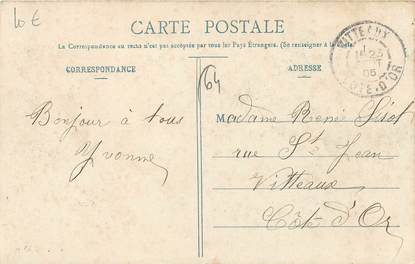 10 €
CARTE POSTALE
La Correspondance au recto n'est pas acceptée par tous les Pays Étrangers. (Se renseigner à la Poste)
CORRESPONDANCE
ADRESSE
64
VITTEAUX
23
05
CÔTE-D'OR
Bonjour à tous
Yvonne
Madame René
rue St Jean
Vitteaux
Côte d'Or